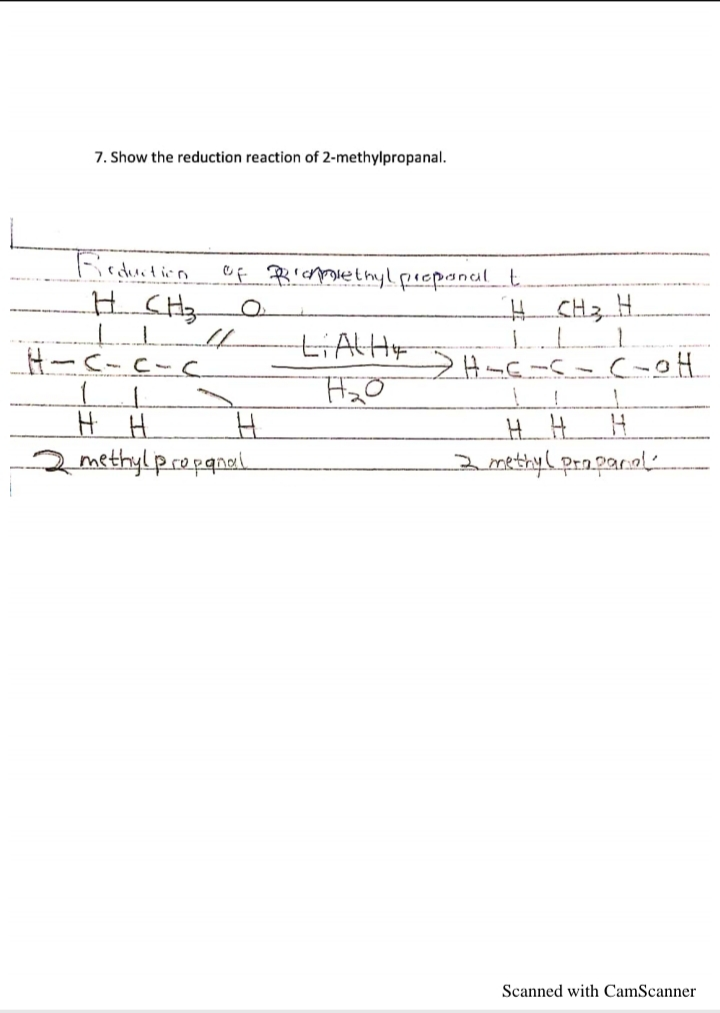 7. Show the reduction reaction of 2-methylpropanal.
Reduction of methylpropanal
H CH3 O H CH3 H
H-C-C-C LiAlH4 H-C-C-C-OH
H H H H2O H H H
2 methylpropanal 2 methylpropanol
Scanned with CamScanner